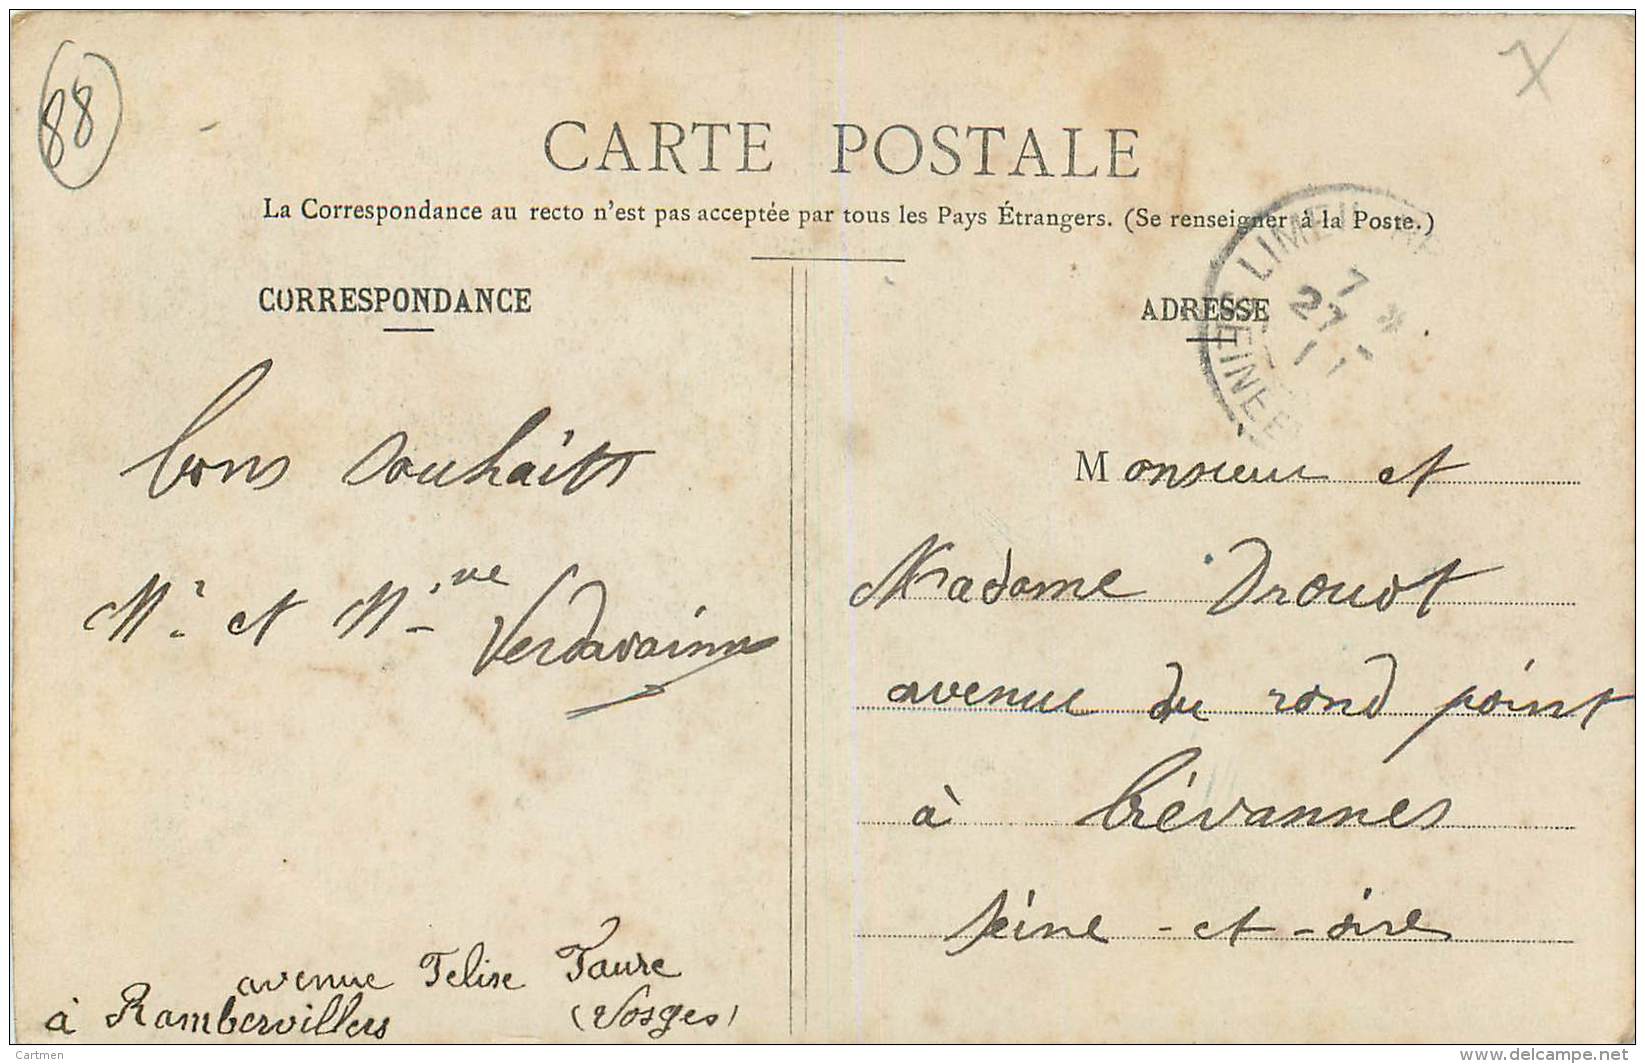 88
CARTE POSTALE
La Correspondance au recto n'est pas acceptée par tous les Pays Étrangers. (Se renseigner à la Poste.)
CORRESPONDANCE
bons souhaits
Mr et Mme Verdavainne
avenue Félixe Faure
à Rambervillers (Vosges)
ADRESSE
LIMEIL
7
27
SEINE
Monsieur et
Madame Drouot
avenue du rond point
à Brévannes
Seine-et-oise
Cartmen
www.delcampe.net